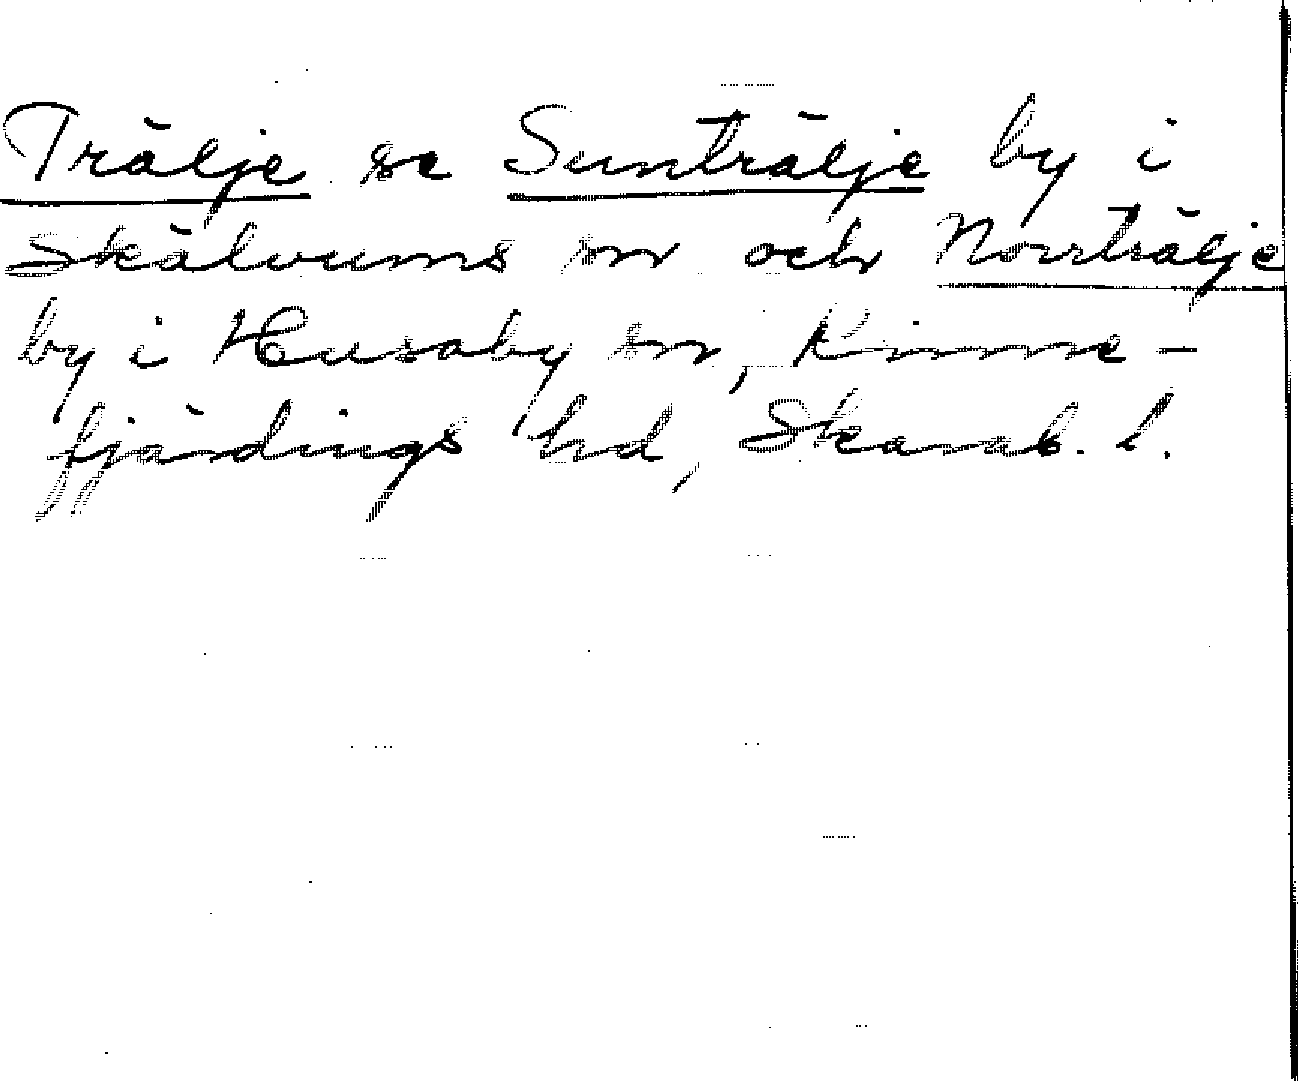 Trälje se Sunträlje by i
Skälvums sn och Norrträlje
by i Husaby sn, Kinne-
fjärdings hd, Skarab. l.